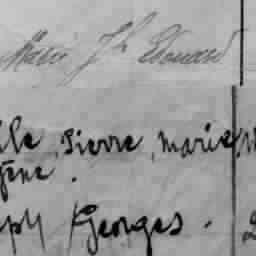 Marie Jh Edouard
ile, Pierre, Marie, M
gène.
eph Georges.